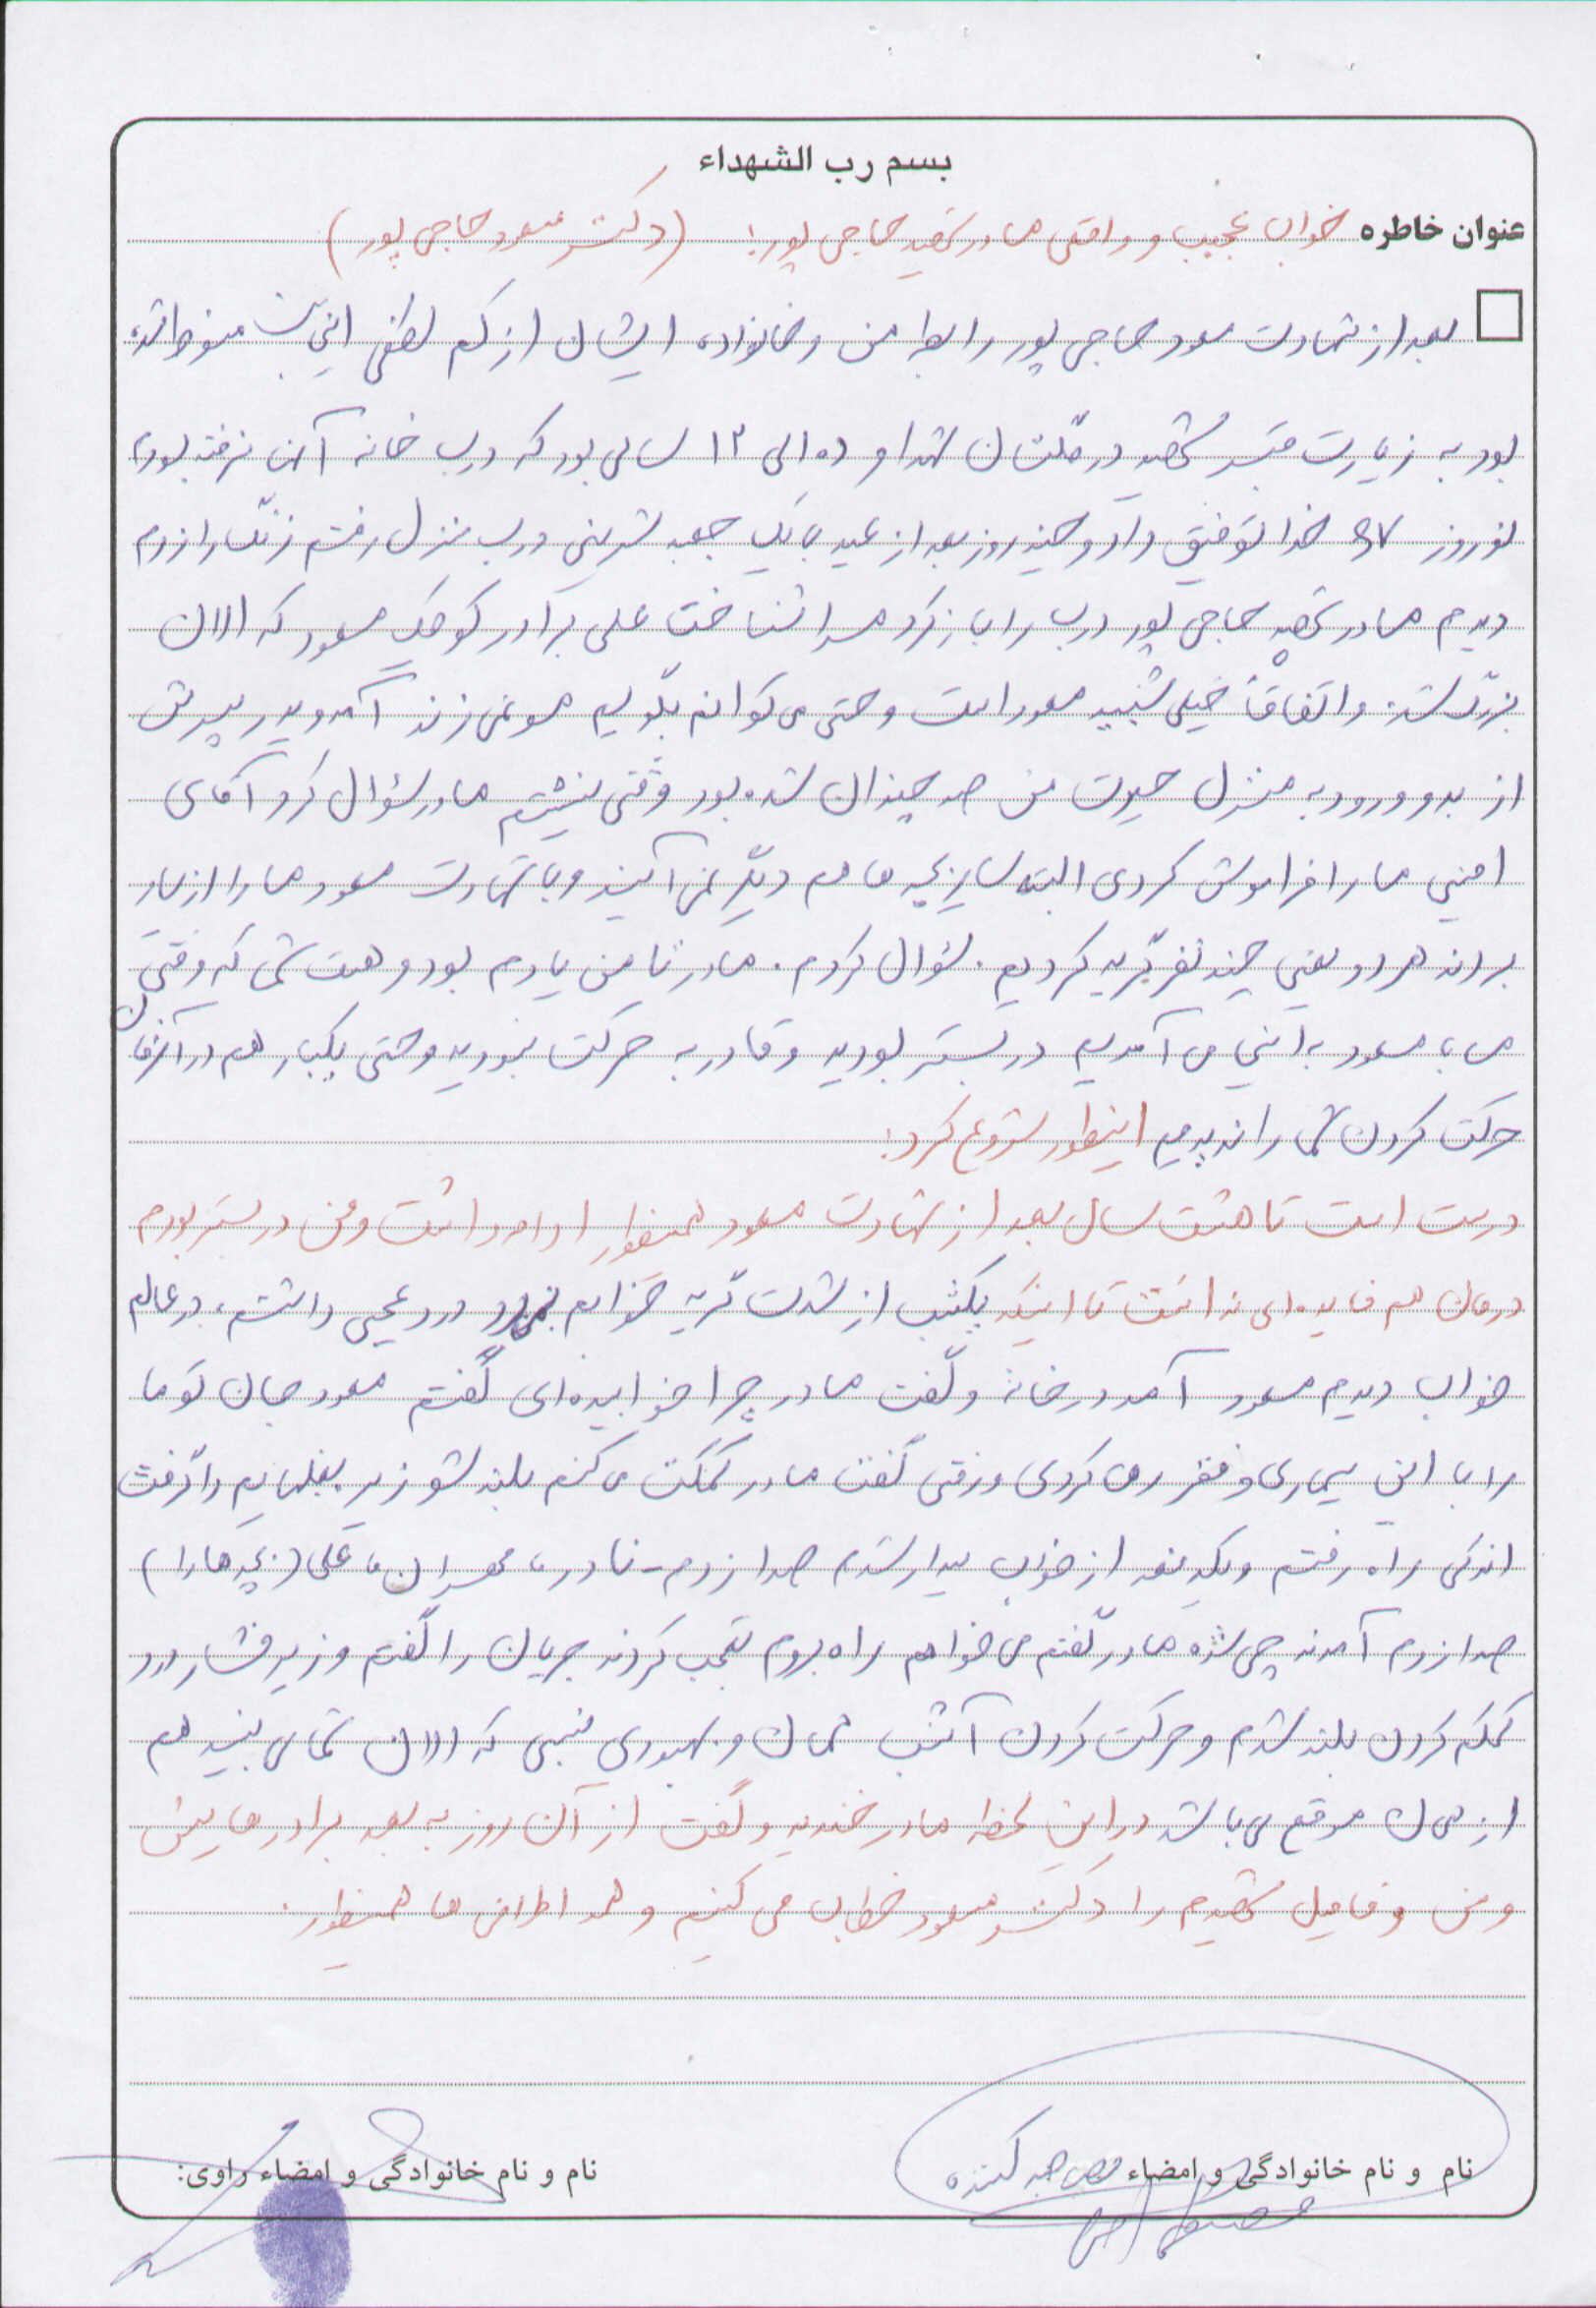 بسم رب الشهداء
عنوان خاطره خواب عجیب و واقعی مادر شهید حاجی پور! (دکتر مسعود حاجی پور)
بعد از شهادت مسعود حاجی پور رابطه من و خانواده ایشان از کم لطفی اینجانب
بود به زیارت قبر شهید در گلستان شهدا و ده الی ۱۲ سالی بود که درب خانه آنان نرفته بودم
نوروز ۸۷ خدا توفیق داد و چند روز بعد از عید با یک جعبه شیرینی درب منزل رفتم زنگ را زدم
دیدم مادر شهید حاجی پور درب را باز کرد مرا شناخت علی برادر کوچک مسعود که الان
بزرگ شده و اتفاقاً خیلی شبیه مسعود است و حتی می توانم بگویم مو نمی زند آمد و پدر پیرش
از بدو ورود به منزل حیرت من صد چندان شده بود وقتی نشستم مادر سؤال کرد آقای
امینی ما را فراموش کردی البته سایر بچه ها هم دیگر نمی آیند و با شهادت مسعود ما را از یاد
بردند هر دو یعنی چند نفر گریه کردیم. سؤال کردم. مادر تا من یادم بود و هست شما که وقتی
ما با مسعود به اینجا می آمدیم در بستر بودید و قادر به حرکت نبودید و حتی یکبار هم در آن زمان
حرکت کردن شما را ندیدیم اینطور شروع کرد:
درست است تا هشت سال بعد از شهادت مسعود همینطور ادامه داشت و من در بستر بودم
درمان هم فایده ای نداشت تا اینکه یکشب از شدت گریه خوابم نمی‌برد درد عجیبی داشتم، در عالم
خواب دیدم مسعود آمد در خانه و گفت مادر چرا خوابیده ای گفتم مسعود جان تو ما
را با این بیماری و فقر رها کردی و رفتی گفت مادر کمکت می کنم بلند شو زیر بغلهایم را گرفت
اندکی راه رفتم و یکدفعه از خواب بیدار شدم صدا زدم - نادر، علی (بچه ها را)
صدا زدم آمدند چی شده مادر گفتم می خواهم راه بروم تعجب کردند جریان را گفتم و زیر فشار درد
کمک کردن بلند شدم و حرکت کردن آنشب همان و بهبودی نسبی که الان شما می بینید هم
از همان موقع می باشد در این لحظه مادر خندید و گفت از آن روز به بعد برادرهایش
و من و فامیل شهیدم را دکتر مسعود خطاب می کنیم و همه اطرافی ها همینطور.
نام و نام خانوادگی و امضاء مصاحبه کننده
نام و نام خانوادگی و امضاء راوی: